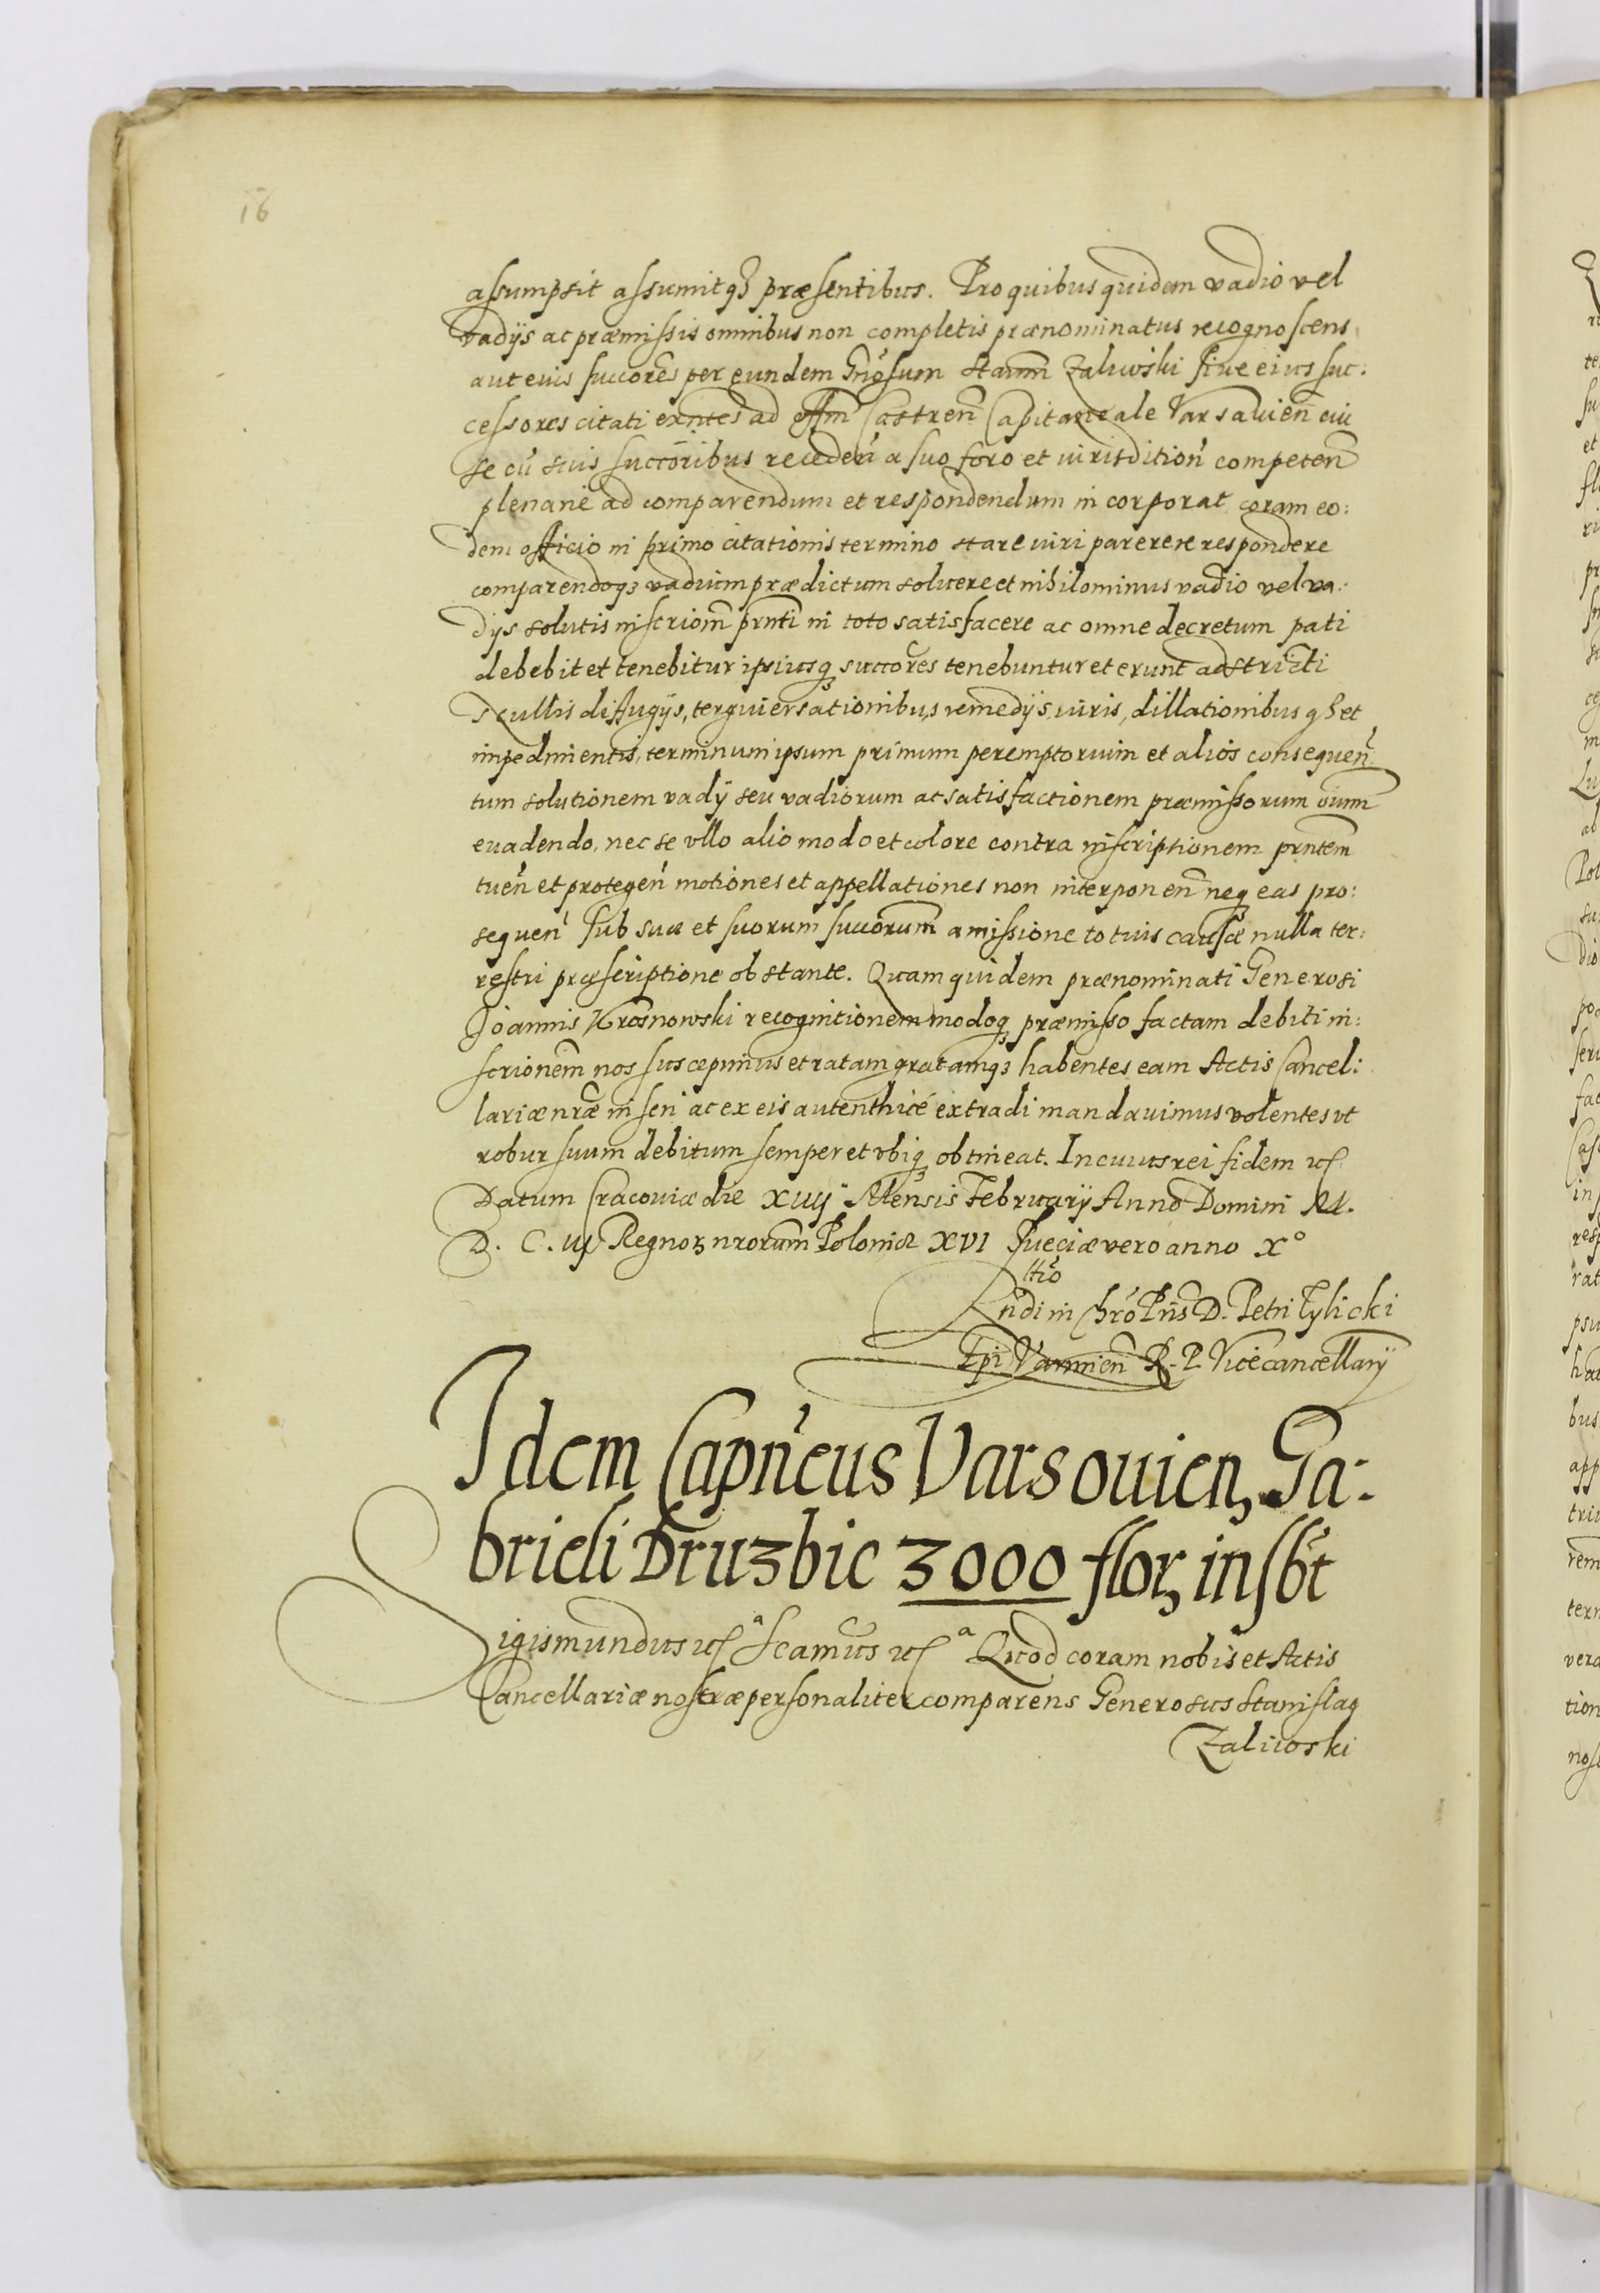 16
assumpsit assumitq3 præsentibus. Pro quibus quidem vadio vel
vadijs ac præmissis omnibus non completis prænominatus recognoscens
aut eius succores per eundem Gnosum Stanm Zaliwski sive eius suc:
cessores citati exntes ad offm Castren Capitaneale Varsavien cui
se cu suis succoribus receden a suo foro et iurisdition competen
plenarie ad comparendum et respondendum incorporat coram eo:
dem officio in primo citationis termino stare iuri parere respondere
comparendoq3 vadium prædictum soluere et nihilominus vadio vel va:
dijs solutis inscriom prnti in toto satisfacere ac omne decretum pati
debebit et tenebitur ipsiusq succores tenebuntur et erunt adstricti
Nullis diffugijs, terguiersationibus remedijs, iuris, dillationibus q3 et
impedimentis, terminum ipsum primum peremptorium et alios consequen
tum solutionem vadij seu vadiorum ac satisfactionem præmissorum oium
evadendo, nec se vllo alio modo et colore contra inscriptionem prntem
tuen et protegen motiones et appellationes non interponen neq eas pro:
sequen sub sua et suorum succorum amissione totius causæ nulla ter:
restri præscriptione obstante. Quam quidem prænominati Generosi
Joannis Krosnowski recognitionem modoq præmisso factam debiti in:
scrionem nos suscepimus et ratam gratamq3 habentes eam Actis Cancel:
lariæ nræ inseri ac ex eis autenthice extradi mandavimus volentes vt
robur suum debitum semper et vbiq obtineat. In cuius rei fidem etc
Datum Cracoviæ die XViij Mensis Februarij Anno Domini M.
D. C. iij Regnor nrorum Poloniæ XVI Sueciæ vero anno X°
Rltio
Rndi in Chro Pris D. Petri Tylicki
Epi Varmien R. P. Vicecancellarij
Idem Capneus Varsovien, Ga:
brieli Druzbic 3000 flor, insbt
Sigismundus etc a Fcamus etc a Quod coram nobis et Actis
Cancellariæ nostræ personaliter comparens Generosus Stanislaq
Zaliwski